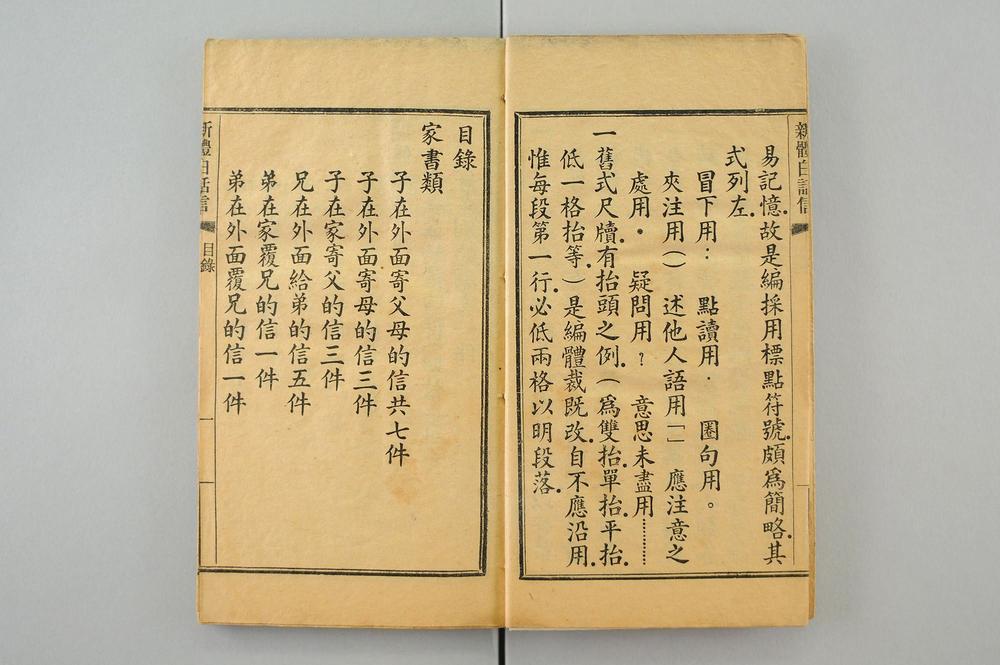 新體白話信
易記憶.故是編採用標點符號.頗爲簡略.其
式列左.
冒下用： 點讀用． 圈句用。
夾注用（） 述他人語用「」 應注意之
處用• 疑問用？ 意思未盡用…………
一舊式尺牘.有抬頭之例.（爲雙抬.單抬.平抬.
低一格抬等.）是編體裁既改.自不應沿用.
惟每段第一行.必低兩格以明段落.
目錄
家書類
子在外面寄父母的信共七件
子在外面寄母的信三件
子在家寄父的信三件
兄在外面給弟的信五件
弟在家覆兄的信一件
弟在外面覆兄的信一件
新體白話信 目錄 一